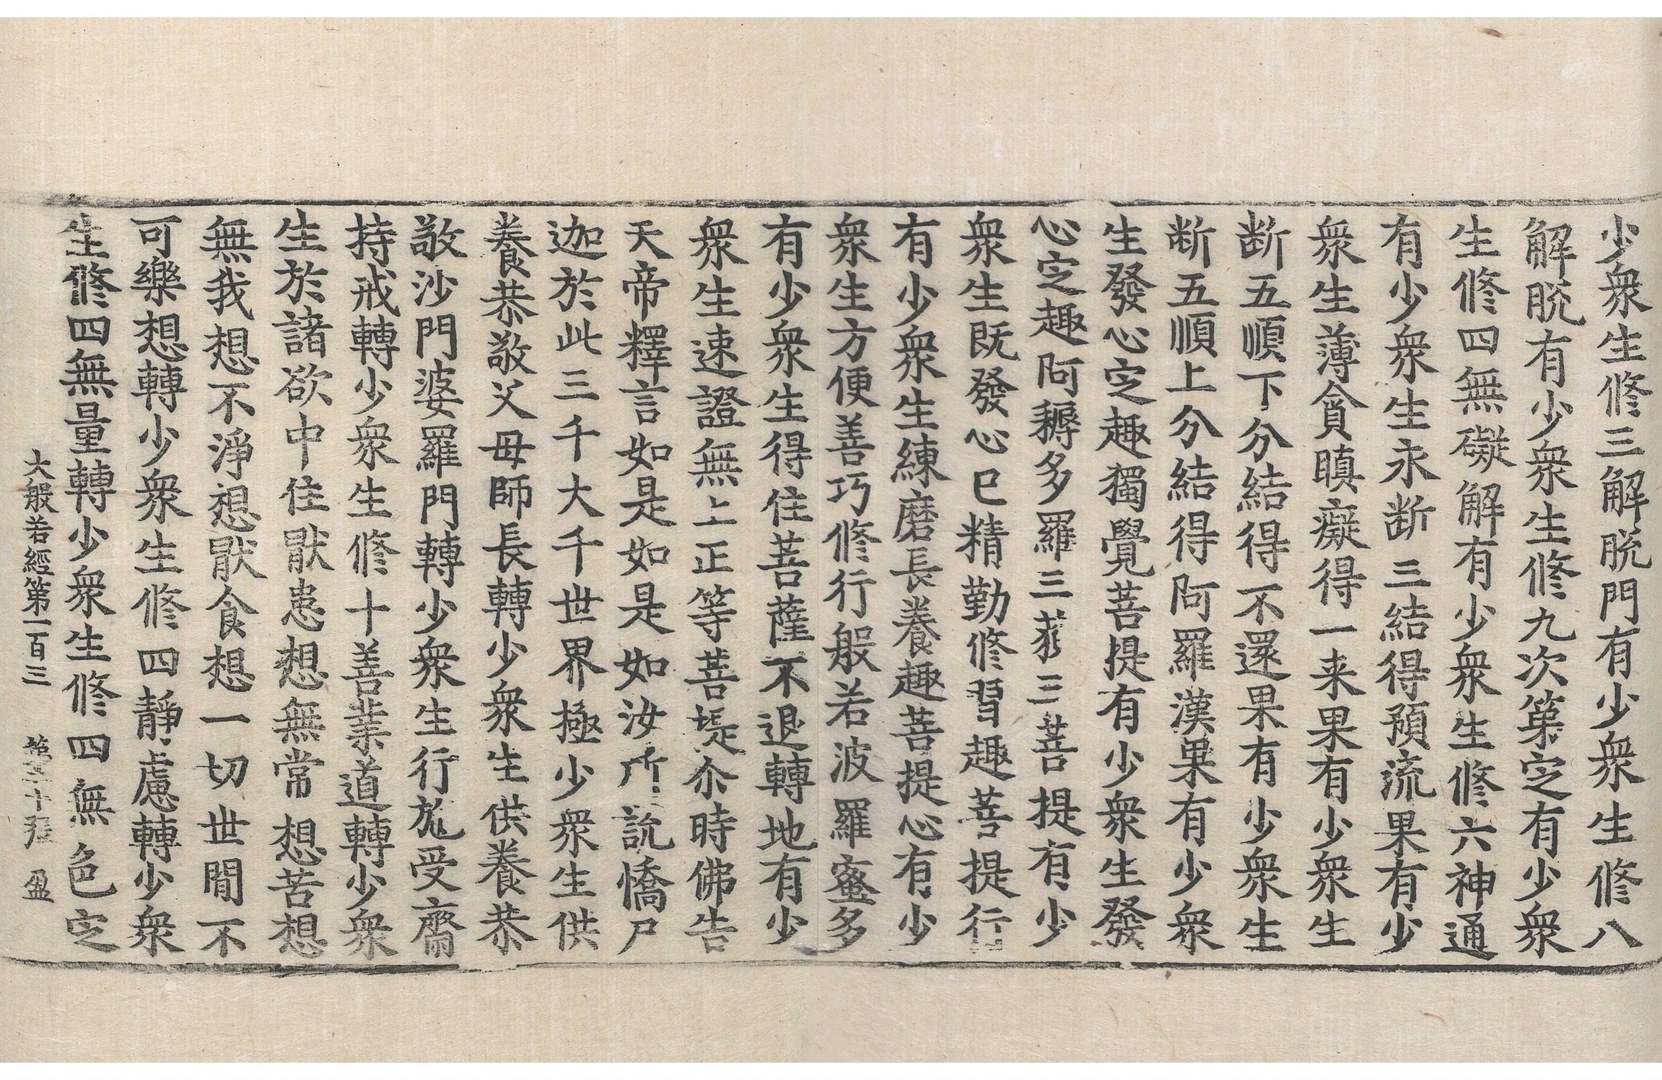 少衆生修三解脫門有少衆生修八
解脫有少衆生修九次第定有少衆
生修四無礙解有少衆生修六神通
有少衆生永断三結得預流果有少
衆生薄貪瞋癡得一来果有少衆生
断五順下分結得不還果有少衆生
断五順上分結得阿羅漢果有少衆
生發心定趣獨覺菩提有少衆生發
心定趣阿耨多羅三藐三菩提有少
衆生既發心已精勤修習趣菩提行
有少衆生練磨長養趣菩提心有少
衆生方便善巧修行般若波羅蜜多
有少衆生得住菩薩不退轉地有少
衆生速證無上正等菩提尒時佛告
天帝釋言如是如是如汝所說憍尸
迦於此三千大千世界極少衆生供
養恭敬父母師長轉少衆生供養恭
敬沙門婆羅門轉少衆生行施受齋
持戒轉少衆生修十善業道轉少衆
生於諸欲中住猒患想無常想苦想
無我想不淨想猒食想一切世間不
可樂想轉少衆生修四靜慮轉少衆
生修四無量轉少衆生修四無色定
大般若經第一百三 第二十張 盈